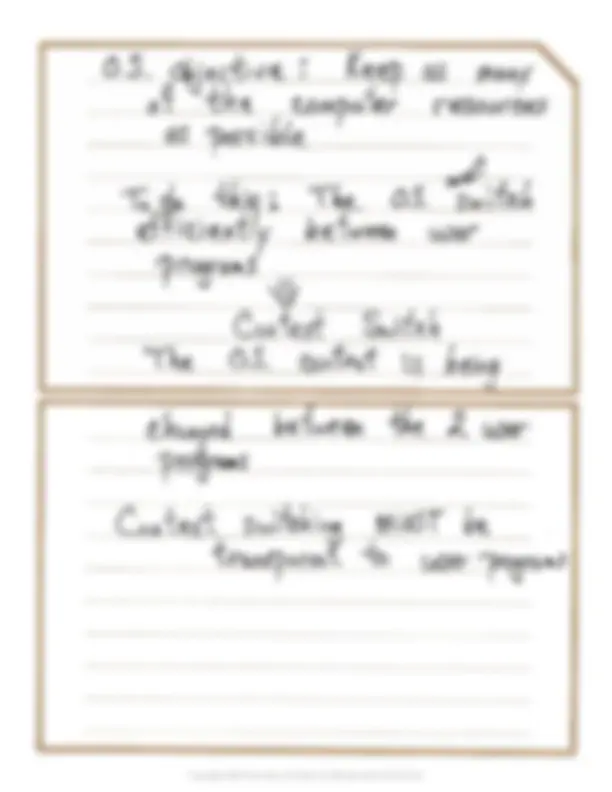 O.S. objective: Keep as many
of the computer resources
as possible
To do this: The O.S. must switch
efficiently between user
programs
Context Switch
The O.S. context is being
changed between the 2 user
programs
Context switching MUST be
transparent to user programs